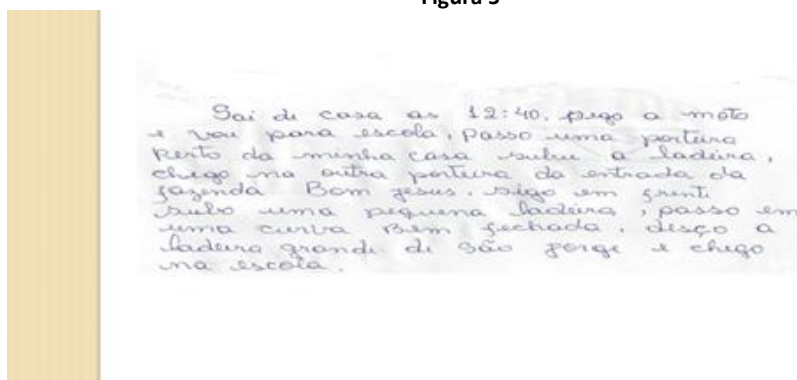 Figura 3
Sai de casa as 12:40. pego a moto
e vou para escola, passo uma porteira
perto da minha casa subu a ladeira,
chego na outra porteira da entrada da
fazenda Bom jesus. sigo em frenti
subo uma piquena ladeira, passo em
uma curva Bem fechada, desço a
ladeira grandi di são jorge e chego
na escola.